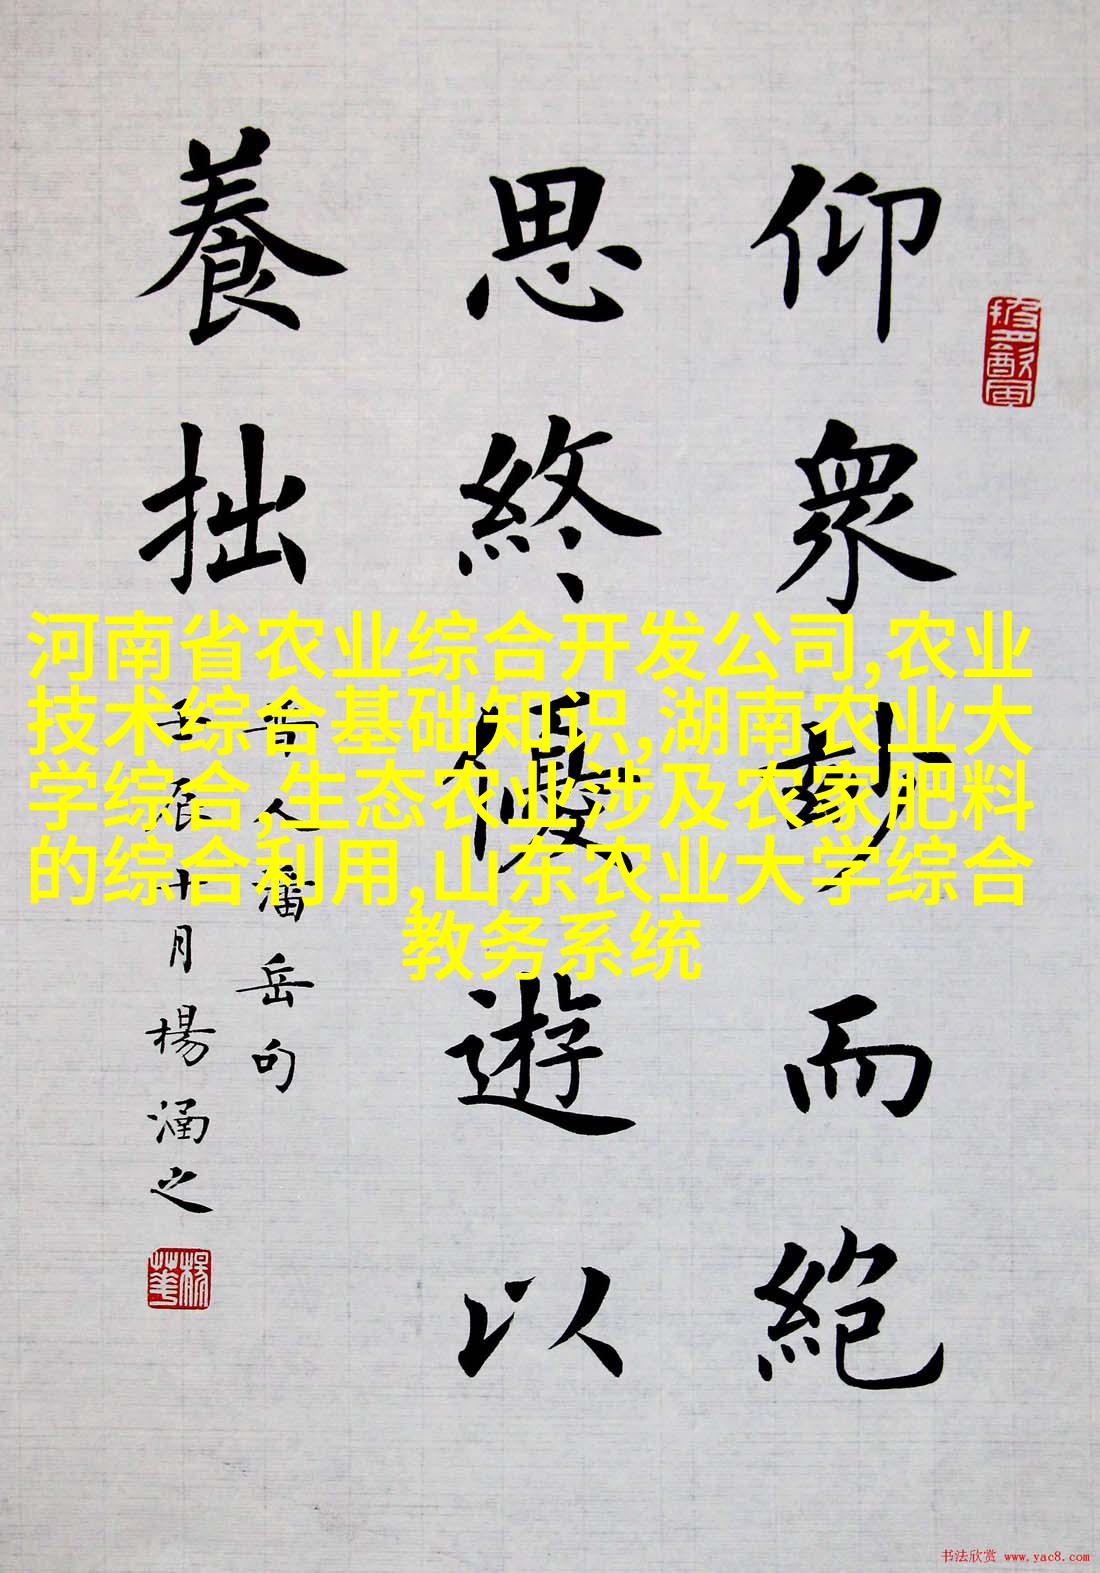 仰衆玅而絶
思終優遊以
養拙
晋人潘岳句
壬辰十月楊涵之
河南省农业综合开发公司,农业
技术综合基础知识,湖南农业大
学综合,生态农业涉及农家肥料
的综合利用,山东农业大学综合
教务系统
书法欣赏 www.yac8.com